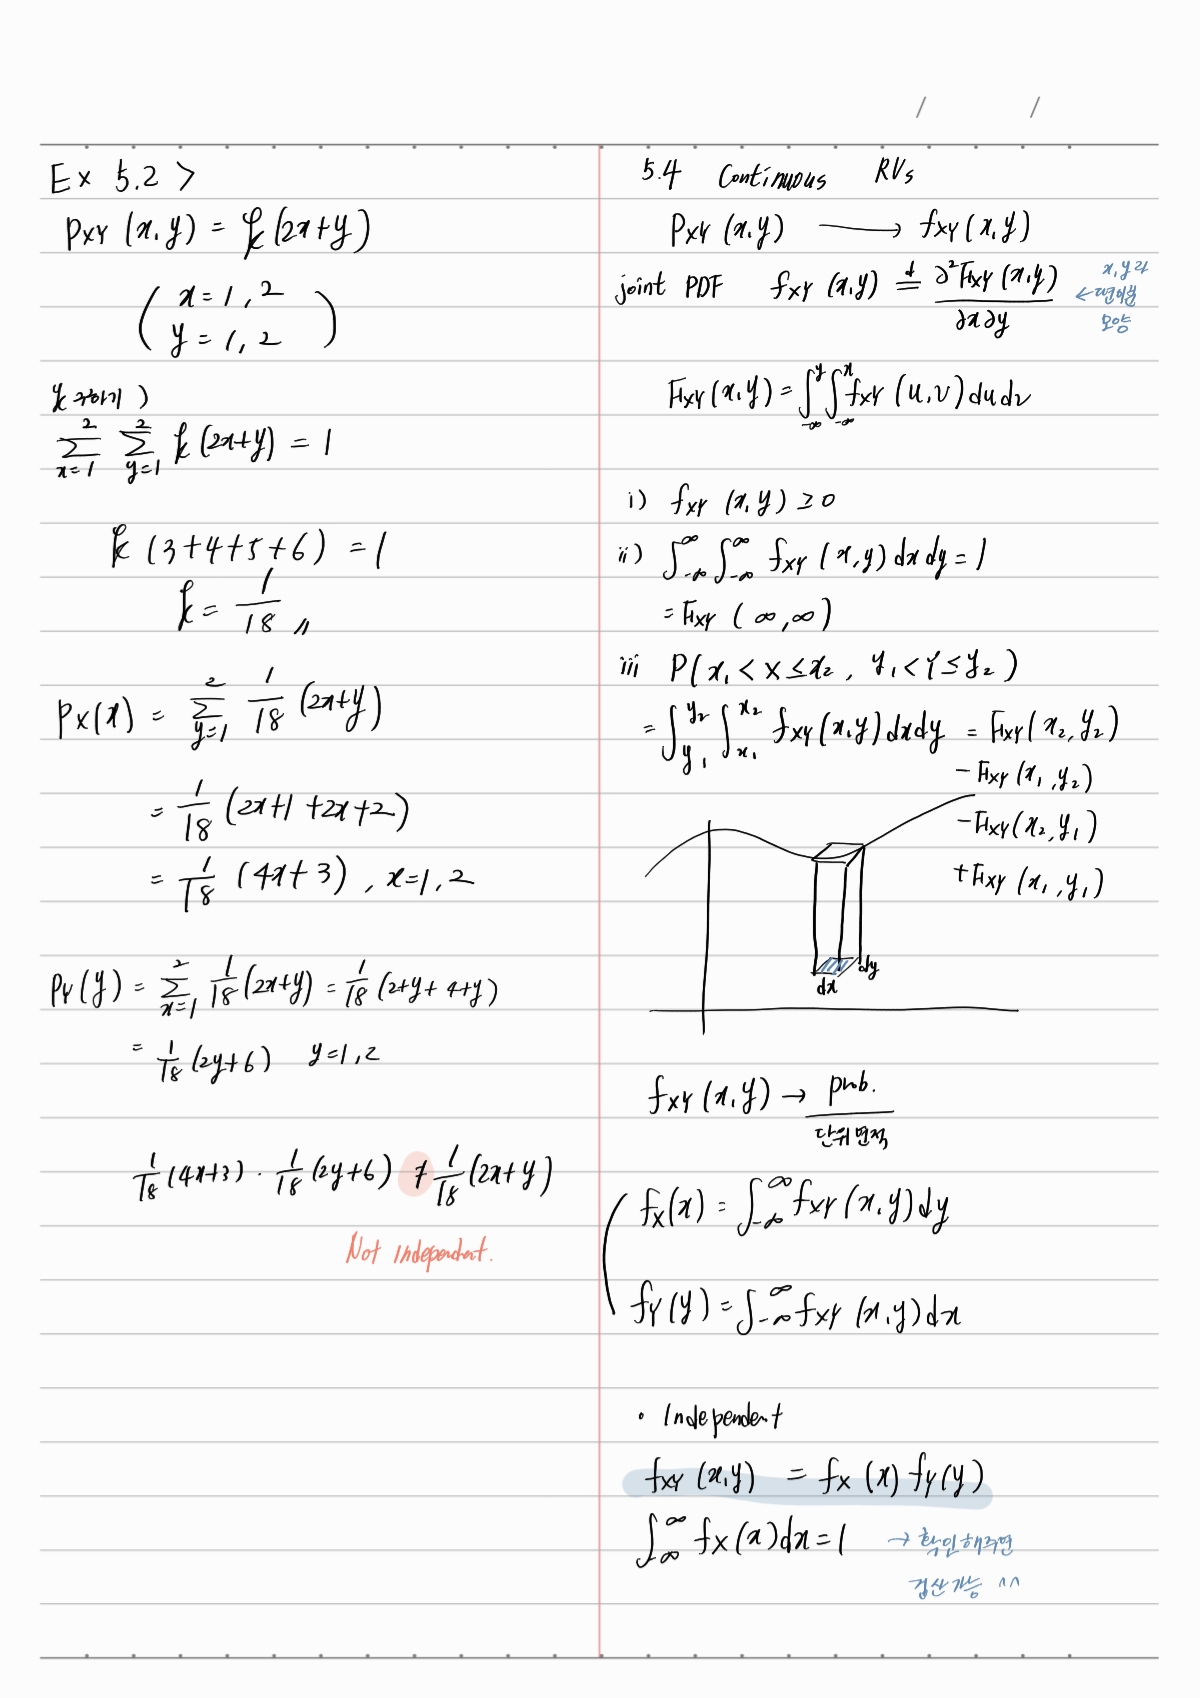 / /
Ex 5.2 >
P_XY (x,y) = k(2x+y)
( x=1, 2
y=1, 2 )
k 구하기 )
∑_{x=1}^{2} ∑_{y=1}^{2} k(2x+y) = 1
k (3+4+5+6) = 1
k = 1/18 〃
P_X(x) = ∑_{y=1}^{2} 1/18 (2x+y)
= 1/18 (2x+1 +2x+2)
= 1/18 (4x+3) , x=1, 2
P_Y(y) = ∑_{x=1}^{2} 1/18 (2x+y) = 1/18 (2+y+ 4+y)
= 1/18 (2y+6) y=1, 2
1/18 (4x+3) · 1/18 (2y+6) ≠ 1/18 (2x+y)
Not independent.
5.4 Continuous RVs
P_XY (x,y) ⟶ f_XY (x,y)
joint PDF f_XY (x,y) ≜ ∂²F_XY (x,y) / ∂x∂y
x,y라
← 편미분
모양
F_XY (x,y) = ∫_{-∞}^{y} ∫_{-∞}^{x} f_XY (u,v) du dv
i) f_XY (x,y) ≥ 0
ii) ∫_{-∞}^{∞} ∫_{-∞}^{∞} f_XY (x,y) dx dy = 1
= F_XY ( ∞,∞)
iii P(x₁ < X ≤ x₂ , y₁ < Y ≤ y₂ )
= ∫_{y₁}^{y₂} ∫_{x₁}^{x₂} f_XY (x,y) dx dy = F_XY( x₂, y₂)
- F_XY (x₁ ,y₂)
- F_XY(x₂, y₁)
+ F_XY (x₁ ,y₁)
dy
dx
f_XY (x,y) → prob. / 단위 면적
f_X(x) = ∫_{-∞}^{∞} f_XY (x,y) dy
f_Y(y) = ∫_{-∞}^{∞} f_XY (x,y) dx
• Independent
f_XY (x,y) = f_X (x) f_Y(y)
∫_{∞}^{∞} f_X (x) dx = 1 → 확인해주면
검산가능 ^^